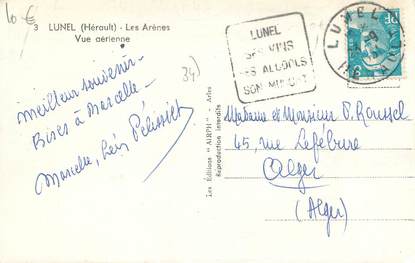 10 €
3 LUNEL (Hérault) - Les Arènes
Vue aérienne
34)
LUNEL
SES VINS
SES ALCOOLS
SON MUSCAT
LUNEL
HERAULT
Meilleur souvenir -
Bises à Marcelle -
Marcelle, Léon Pélissier
Les Editions "AIRPH" - Arles
Reproduction interdite
Madame et Monsieur P. Roussel
45, rue Lefébure
Alger
(Alger)